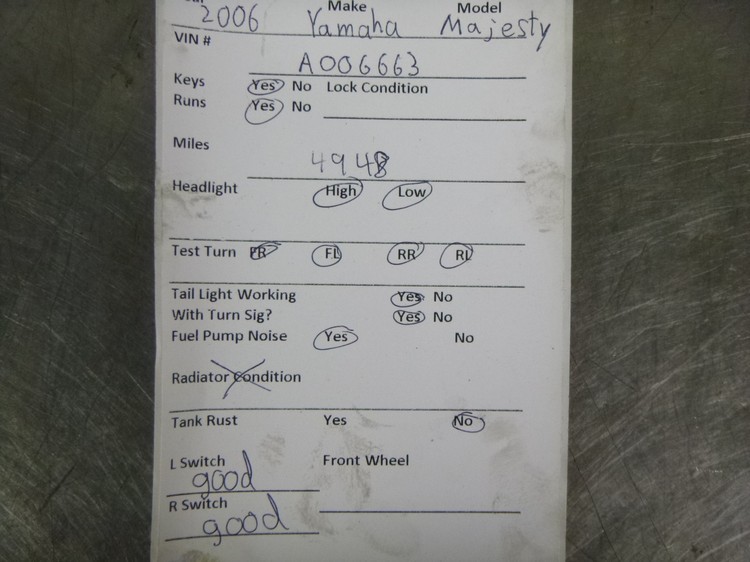 Make Model
2006 Yamaha Majesty
VIN #
A006663
Keys Yes No Lock Condition
Runs Yes No
Miles
4948
Headlight High Low
Test Turn FR FL RR RL
Tail Light Working Yes No
With Turn Sig? Yes No
Fuel Pump Noise Yes No
Radiator Condition
Tank Rust Yes No
L Switch Front Wheel
good
R Switch
good